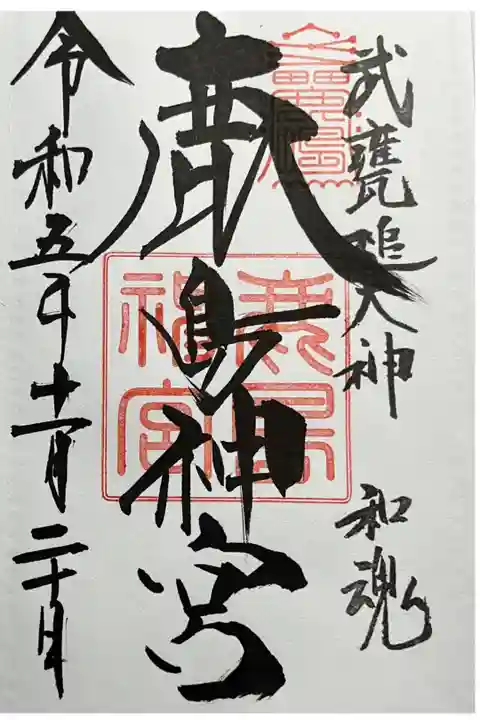 武甕槌大神 和魂
鹿島神宮
令和五年十一月二十日
鹿島
神宮